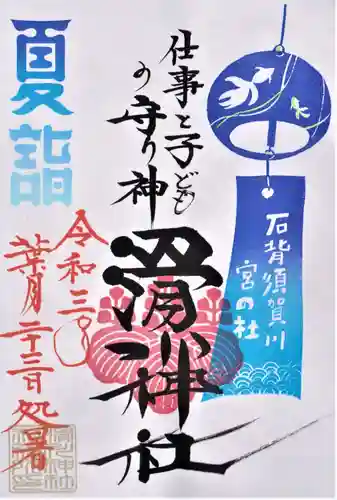 夏詣
仕事と子ども
の守り神
滑川神社
石背須賀川
宮の杜
令和三
葉月二十三日処暑